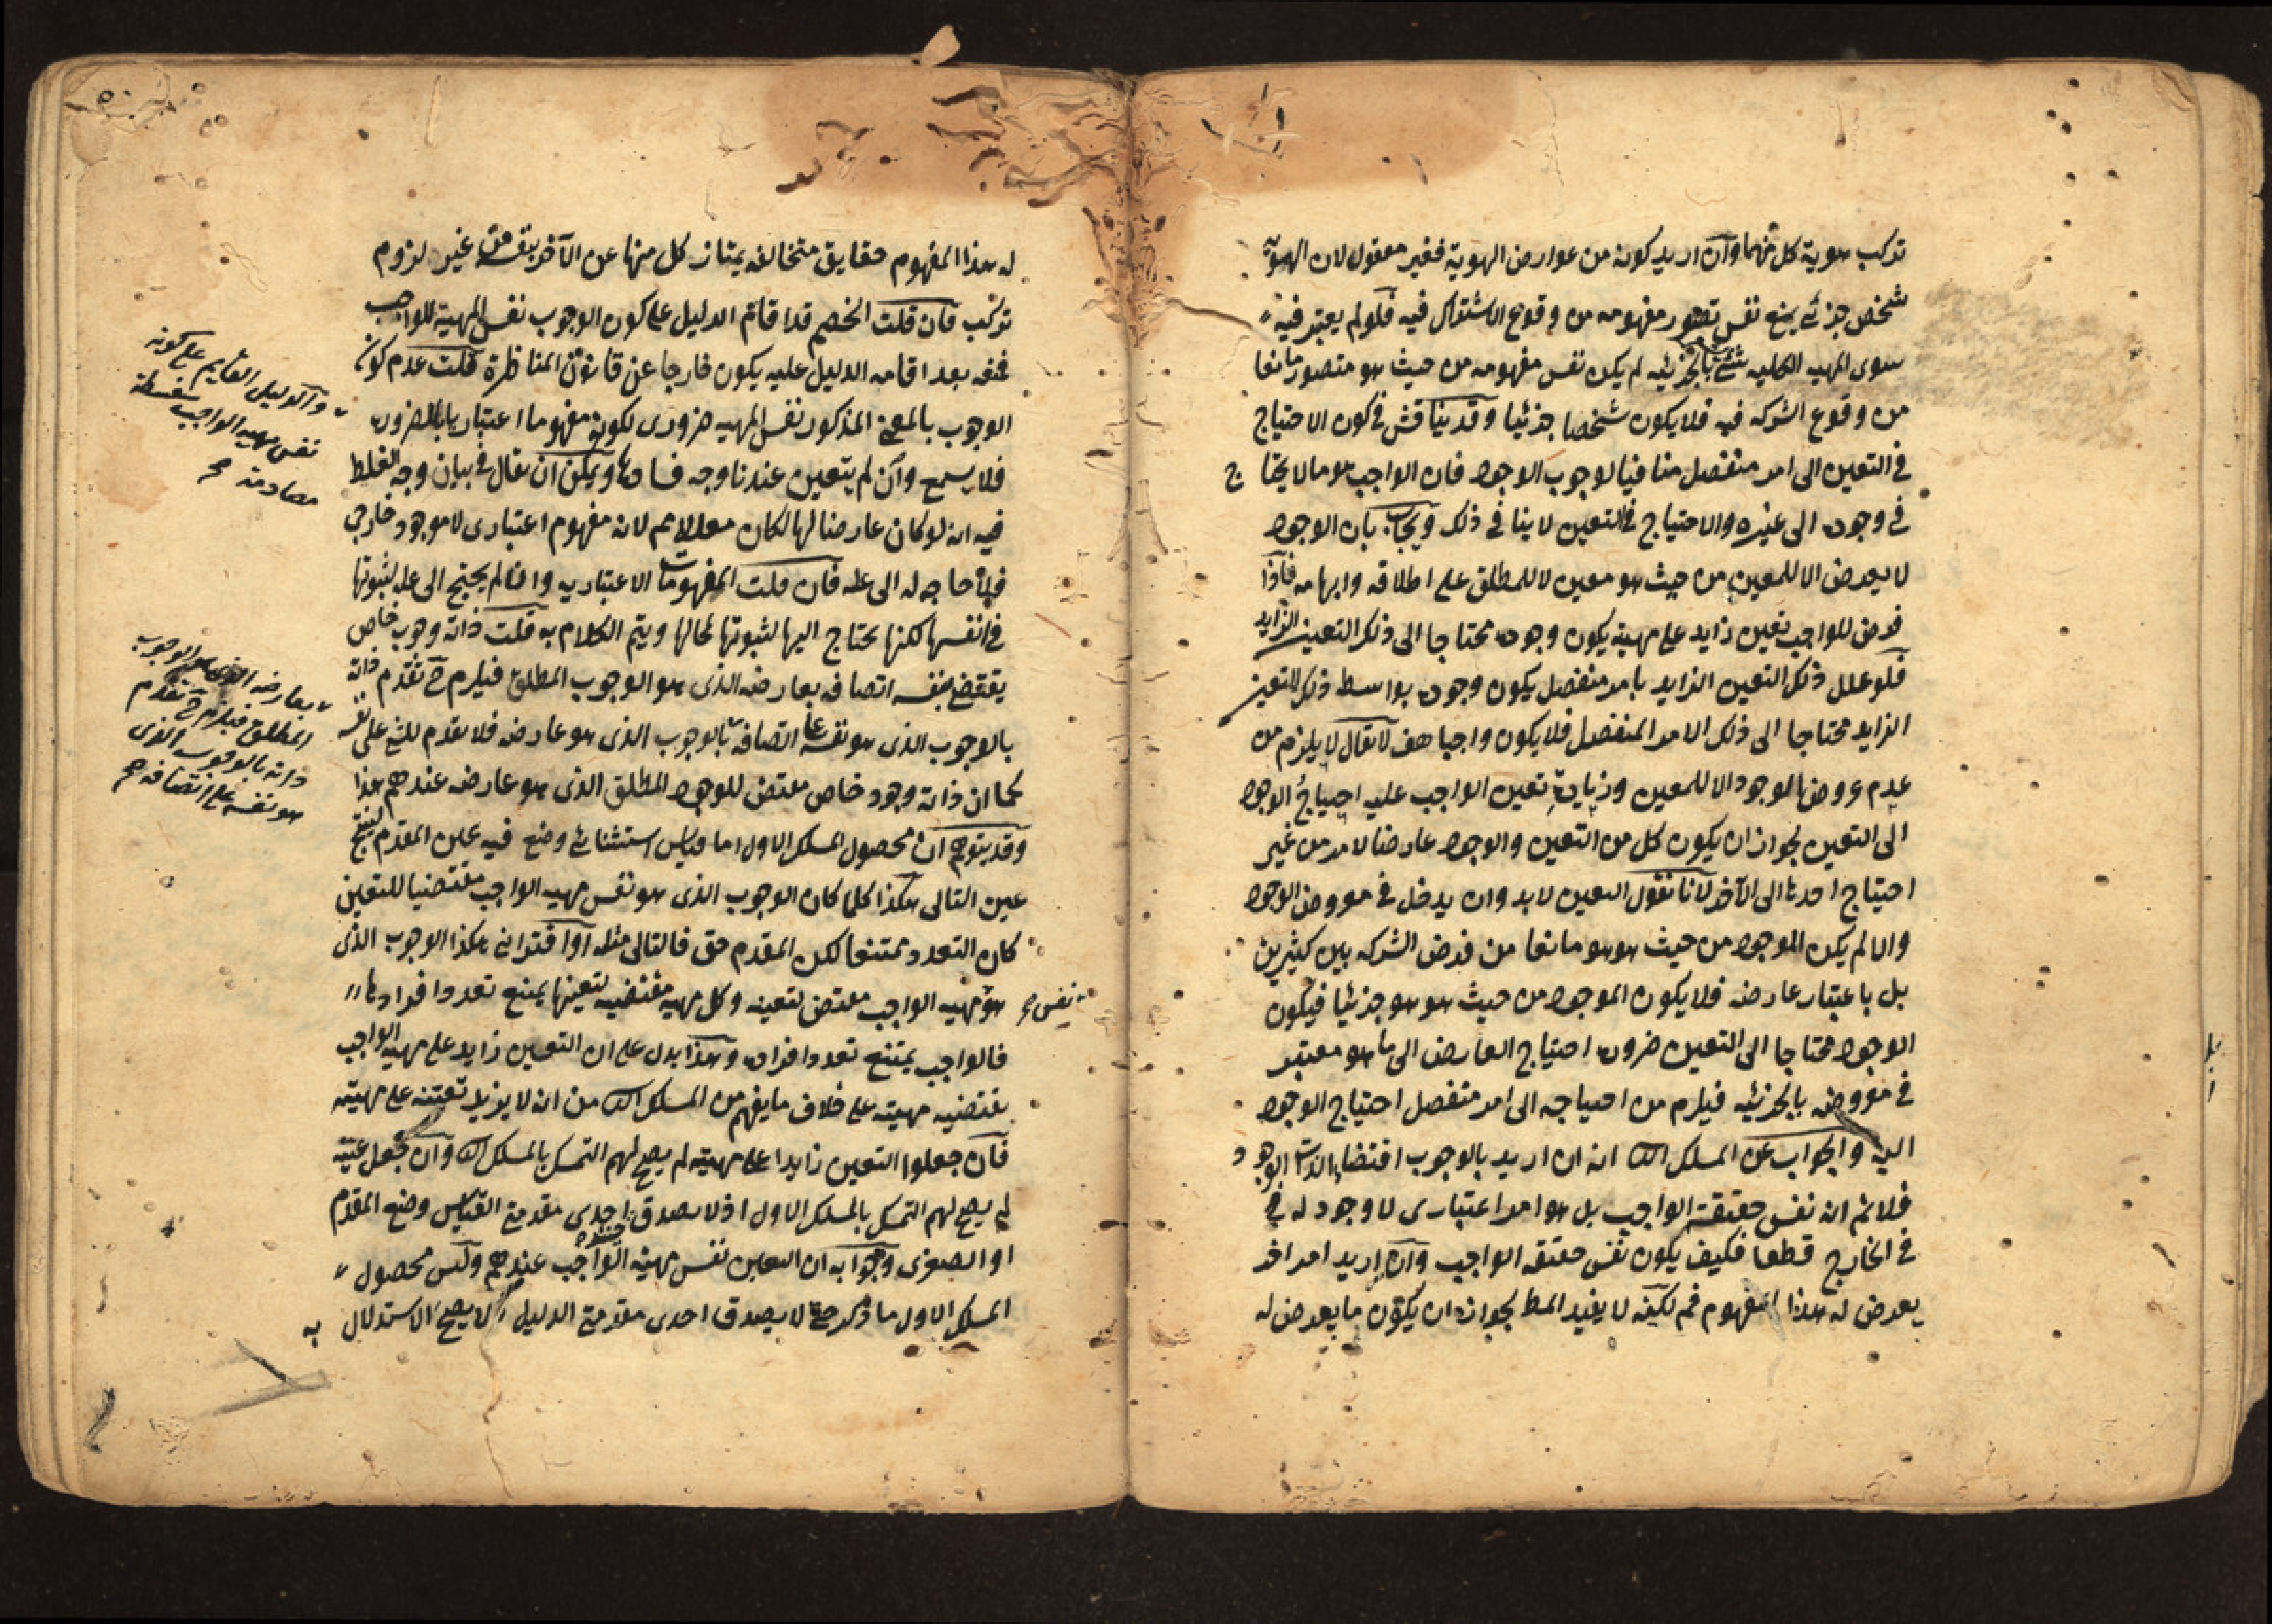 تركب هوية كل منهما وان اريد كونه من عوارض الهوية فغير معقول لان الهوية
شخص جزئى يمنع نفس تصور مفهومه من وقوع الاشتراك فيه فلو لم يعتبر فيه
سوى المهية الكلية شىء بالجزئيه لم يكن نفس مفهومه من حيث هو متصور مانعا
من وقوع الشركه فيه فلا يكون شخصا جزئيا وقد يناقش فى كون الاحتياج
فى التعين الى امر منفصل منافيا لوجوب الوجود فان الواجب هو ما لا يحتاج
فى وجوده الى غيره والاحتياج فى التعين لا ينافى ذلك ويجاب بان الوجود
لا يعرض الا للمعين من حيث هو معين لا للمطلق على اطلاقه وابهامه فاذا
فرض للواجب تعين زايد على مهيته يكون وجوده محتاجا الى ذلك التعين الزايد
فلو علل ذلك التعين الزايد بامر منفصل يكون وجوده بواسطه ذلك التعين
الزايد محتاجا الى ذلك الامر المنفصل فلا يكون واجبا هف لا يقال لا يلزم من
عدم عروض الوجود الا للمعين وزيادة تعين الواجب عليه احتياج الوجود
الى التعين لجواز ان يكون كل من التعين والوجود عارضا لامر من غير
احتياج احدهما الى الآخر لانا نقول التعين لابد وان يدخل فى معروض الوجود
والا لم يكن الموجود من حيث هو هو مانعا من فرض الشركه بين كثيرين
بل باعتبار عارضه فلا يكون الموجود من حيث هو هو جزئيا فيكون
الوجود محتاجا الى التعين ضرورة احتياج العارض الى ما هو معتبر
فى معروضه بالجزئيه فيلزم من احتياجه الى امر منفصل احتياج الوجود
اليه والجواب عن المسلك انه ان اريد بالوجوب اقتضاء الذات الوجود
فلا نم انه نفس حقيقة الواجب بل هو امر اعتبارى لا وجود له فى
فى الخارج قطعا فكيف يكون نفس حقيقه الواجب وان اريد امر اخر
يعرض له هذا المفهوم فم لكنه لا يفيد المط لجواز ان يكون ما يعرض له
له هذا المفهوم حقايق متخالفه يمتاز كل منها عن الآخر بنفسه من غير لزوم
تركب فان قلت الخصم قد اقام الدليل على كون الوجوب نفس المهية للواجب
فمنعه بعد اقامه الدليل عليه يكون خارجا عن قانون المناظرة قلت عدم كون
الوجوب بالمعنى المذكور نفس المهيه ضرورى لكونه مفهوما اعتباريا بالضرورة
وآلدليل القايم على كونه
نفس مهيه الواجب سفسطة
مصادمة
فلا يسمع وان لم يتعين عندنا وجه فسادها ويمكن ان يقال فى بيان وجه الغلط
فيه انه لو كان عارضا لها لكان معللا مم لانه مفهوم اعتبارى لا موجود خارجى
فلا حاجه له الى عله فان قلت المفهومات الاعتباريه وان لم يحتج الى عله لثبوتها
فى انفسها لكنها تحتاج اليها لثبوتها لمحالها ويتم الكلام به قلت ذاته وجوب خاص
يقتضى بنفسه اتصافه بعارضه الذى هو الوجوب المطلق فيلزم ح تقدم ذاته
بالوجوب الذى هو نفسه على اتصافه بالوجوب الذى هو عارضه فلا تقدم للشىء على نفسه
بعارضه الذى هو الوجوب
المطلق فيلزم ح تقدم
ذاته بالوجوب الذى
هو نفسه على اتصافه
كما ان ذاته وجود خاص مقتض للوجود المطلق الذى هو عارضه عندهم هذا
وقد يتوهم ان محصول المسلك الاول اما قياس استثنائى وضع فيه عين المقدم لينتج
عين التالى هكذا كلما كان الوجوب الذى هو نفس مهيه الواجب مقتضيا للتعين
كان التعدد ممتنعا لكن المقدم حق فالتالى مثله او اقترانى هكذا الوجوب الذى
هو مهيه الواجب مقتض لتعينه وكل مهيه مقتضيه لتعينها يمتنع تعدد افرادها
نفس
فالواجب يمتنع تعدد افراده وهذا يدل على ان التعين زايد على مهيه الواجب
تقتضيه مهيته على خلاف ما يفهم من المسلك من انه لا يزيد تعينه على مهيته
فان جعلوا التعين زايدا على مهيته لم يصح لهم التمسك بالمسلك وان جعل عينه
لم يصح لهم التمسك بالمسلك الاول اذ لا يصدق احدى مقدمتى القياس وضع المقدم
او الصغرى وجوابه ان التعين نفس مهية الواجب عندهم وليس محصول
المسلك الاول ما ذكر حتى لا يصدق احدى مقدمتى الدليل لا يصح الاستدلال
به